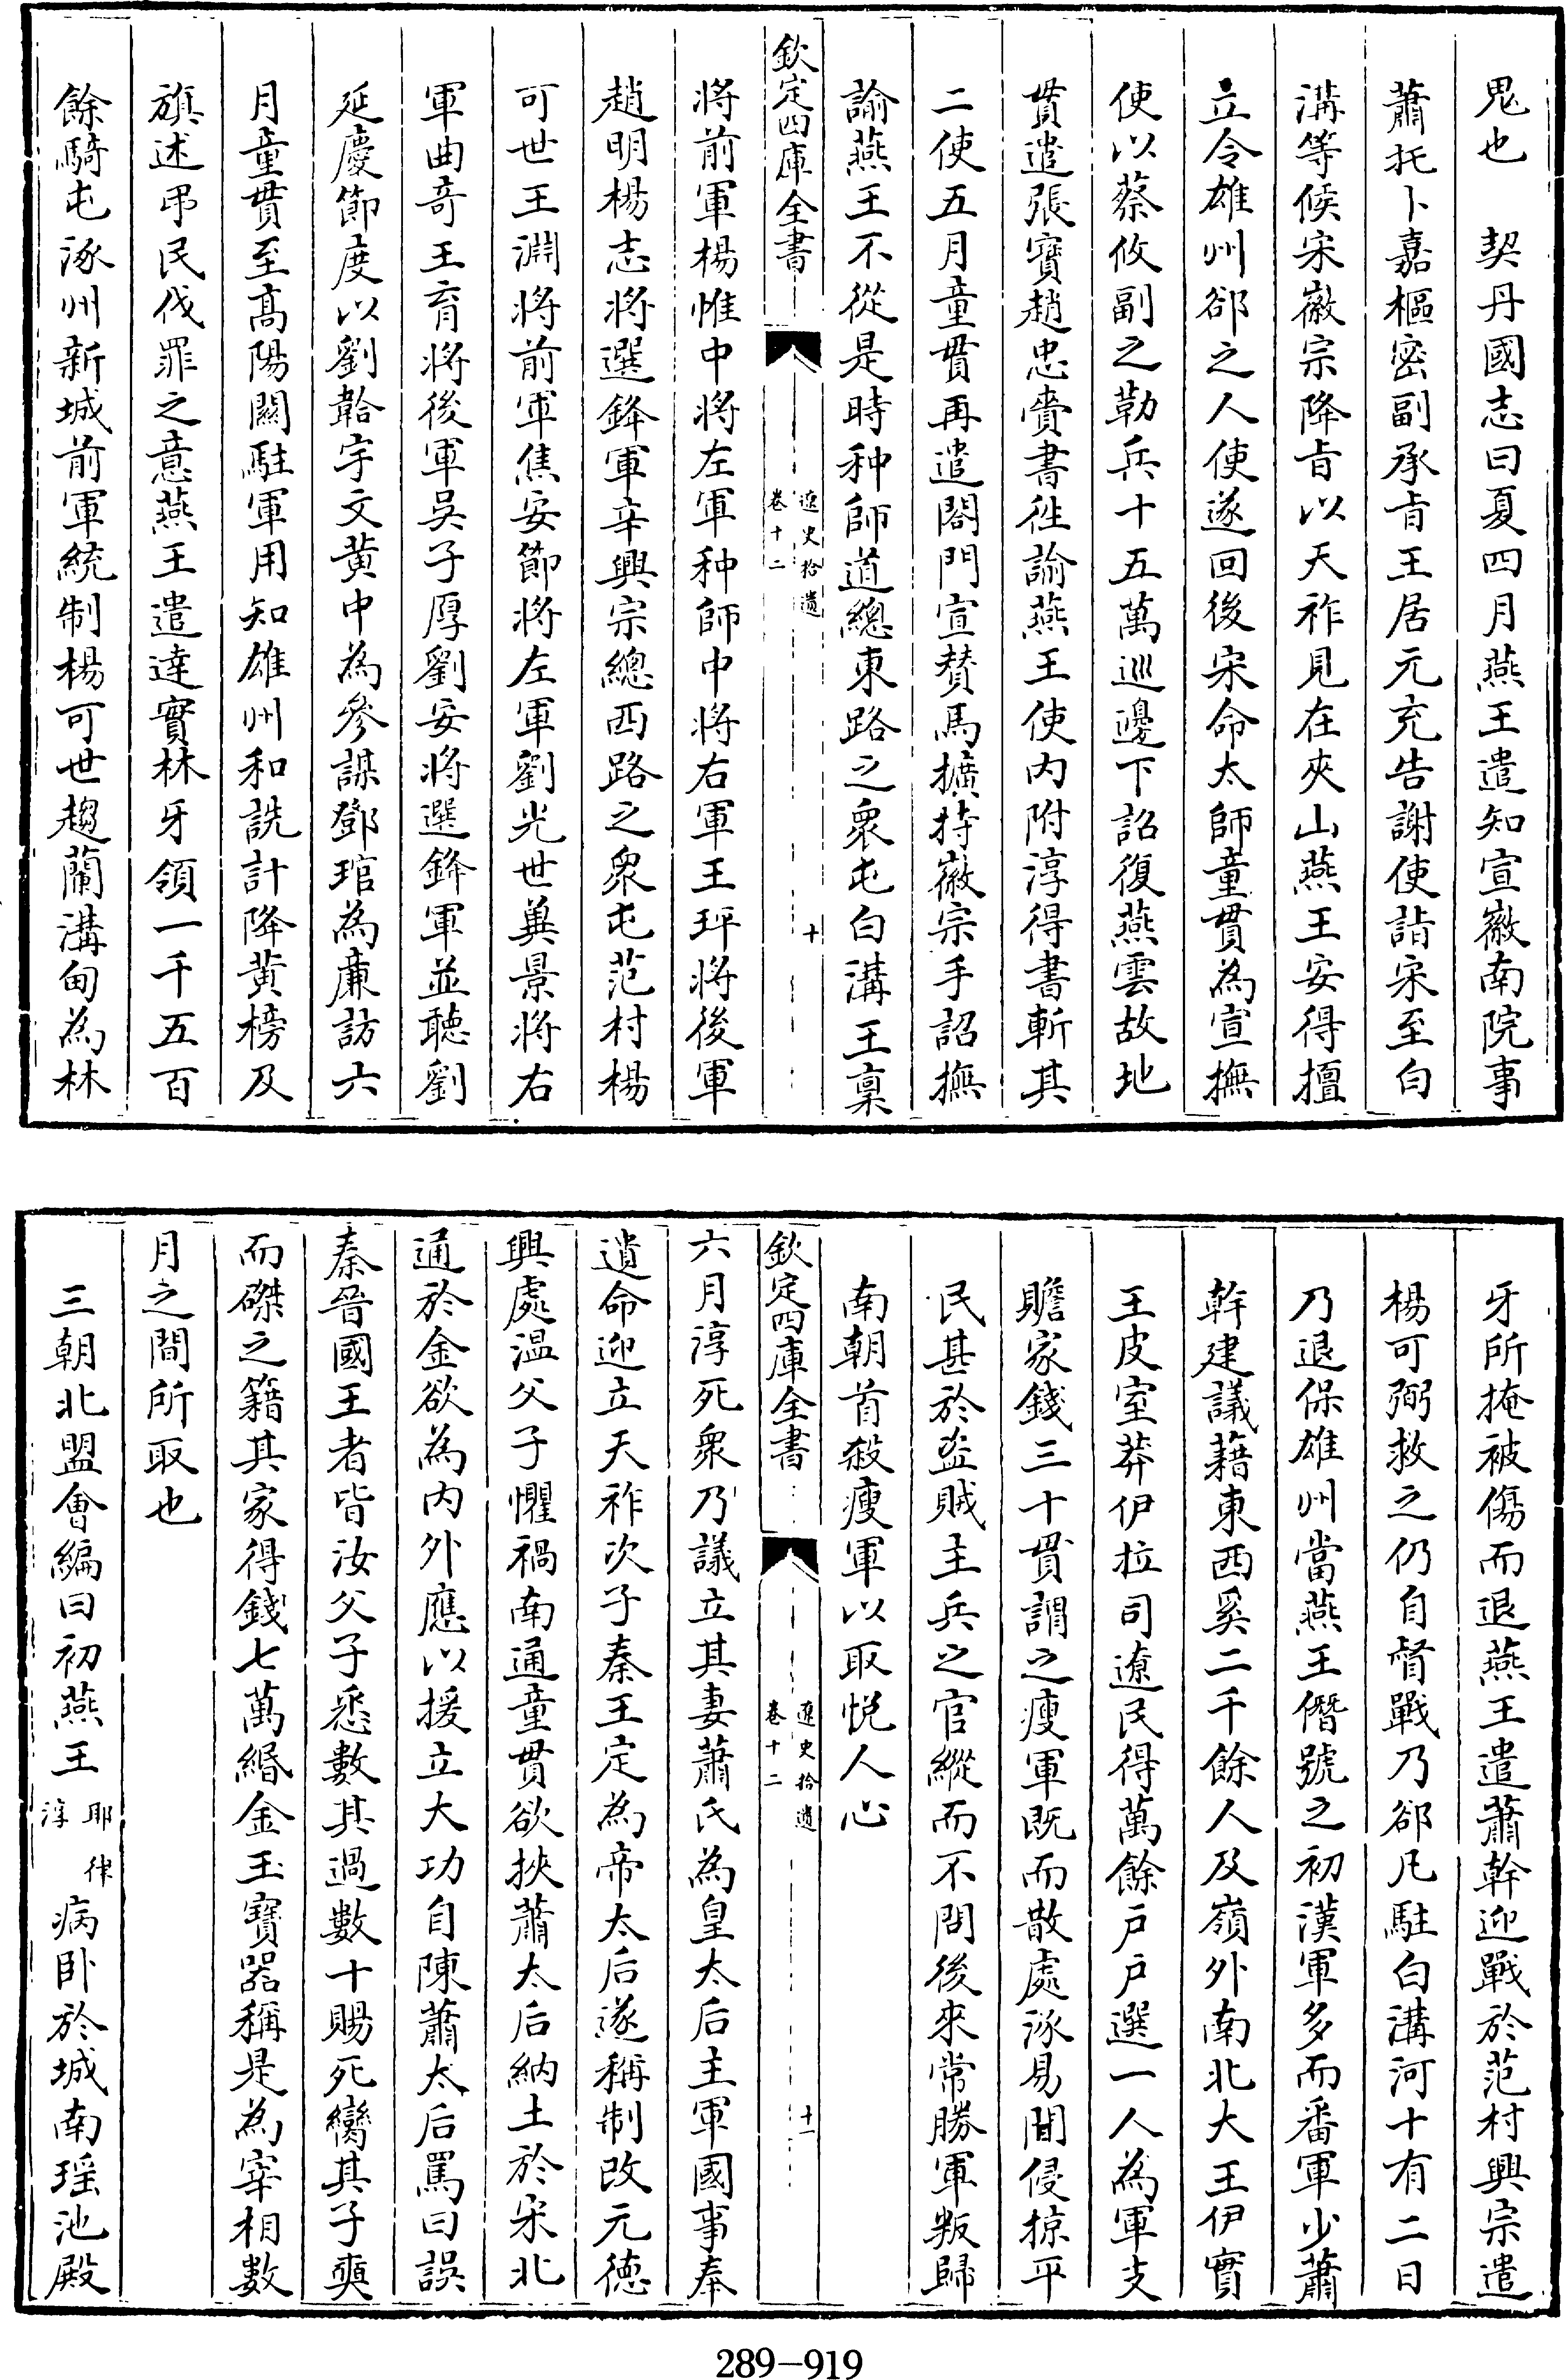 鬼也　契丹國志曰夏四月燕王遣知宣徽南院事
蕭托卜嘉樞密副承旨王居元充告謝使詣宋至白
溝等候宋徽宗降旨以天祚見在夾山燕王安得擅
立令雄州郤之人使遂回後宋命太師童貫為宣撫
使以蔡攸副之勒兵十五萬巡邊下詔復燕雲故地
貫遣張寳趙忠賫書徃諭燕王使内附淳得書斬其
二使五月童貫再遣閤門宣賛馬擴持徽宗手詔撫
諭燕王不從是時种師道總東路之衆屯白溝王稟
欽定四庫全書
遼史拾遺
卷十二
十
將前軍楊惟中將左軍种師中將右軍王坪將後軍
趙明楊志將選鋒軍辛興宗總西路之衆屯范村楊
可世王淵將前軍焦安節將左軍劉光世冀景將右
軍曲竒王育將後軍吳子厚劉安將選鋒軍並聽劉
延慶節度以劉韐宇文黄中為參謀鄧琯為廉訪六
月童貫至髙陽關駐軍用知雄州和詵計降黄榜及
旗述弔民伐罪之意燕王遣達實林牙領一千五百
餘騎屯涿州新城前軍統制楊可世趨蘭溝甸為林
牙所掩被傷而退燕王遣蕭幹迎戰於范村興宗遣
楊可弼救之仍自督戰乃郤凡駐白溝河十有二日
乃退保雄州當燕王僭號之初漢軍多而番軍少蕭
幹建議藉東西奚二千餘人及嶺外南北大王伊實
王皮室莽伊拉司遼民得萬餘戸戸選一人為軍支
贍家錢三十貫謂之瘦軍既而散處涿易間侵掠平
民甚於盜賊主兵之官縱而不問後來常勝軍叛歸
南朝首殺瘦軍以取悅人心
欽定四庫全書
遼史拾遺
卷十二
十一
六月淳死衆乃議立其妻蕭氏為皇太后主軍國事奉
遺命迎立天祚次子秦王定為帝太后遂稱制改元徳
興處温父子懼禍南通童貫欲挾蕭太后納土於宋北
通於金欲為内外應以援立大功自陳蕭太后罵曰誤
秦晉國王者皆汝父子悉數其過數十賜死臠其子奭
而磔之籍其家得錢七萬緡金玉寳器稱是為宰相數
月之間所取也
三朝北盟㑹編曰初燕王耶律淳病卧於城南瑶池殿
289-919